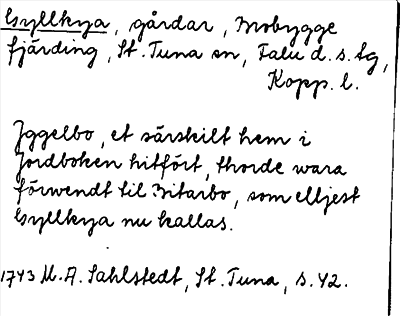 Gyllkya, gårdar, Brobygge
fjärding, St. Tuna sn, Falu d.s. tg,
Kopp. l.
Iggelbo, et särskilt hem i
Jordboken hitfört, thorde wara
förwendt til Bitarbo, som elljest
Gyllkya nu kallas.
1743 M. A. Sahlstedt, St. Tuna, s. 42.